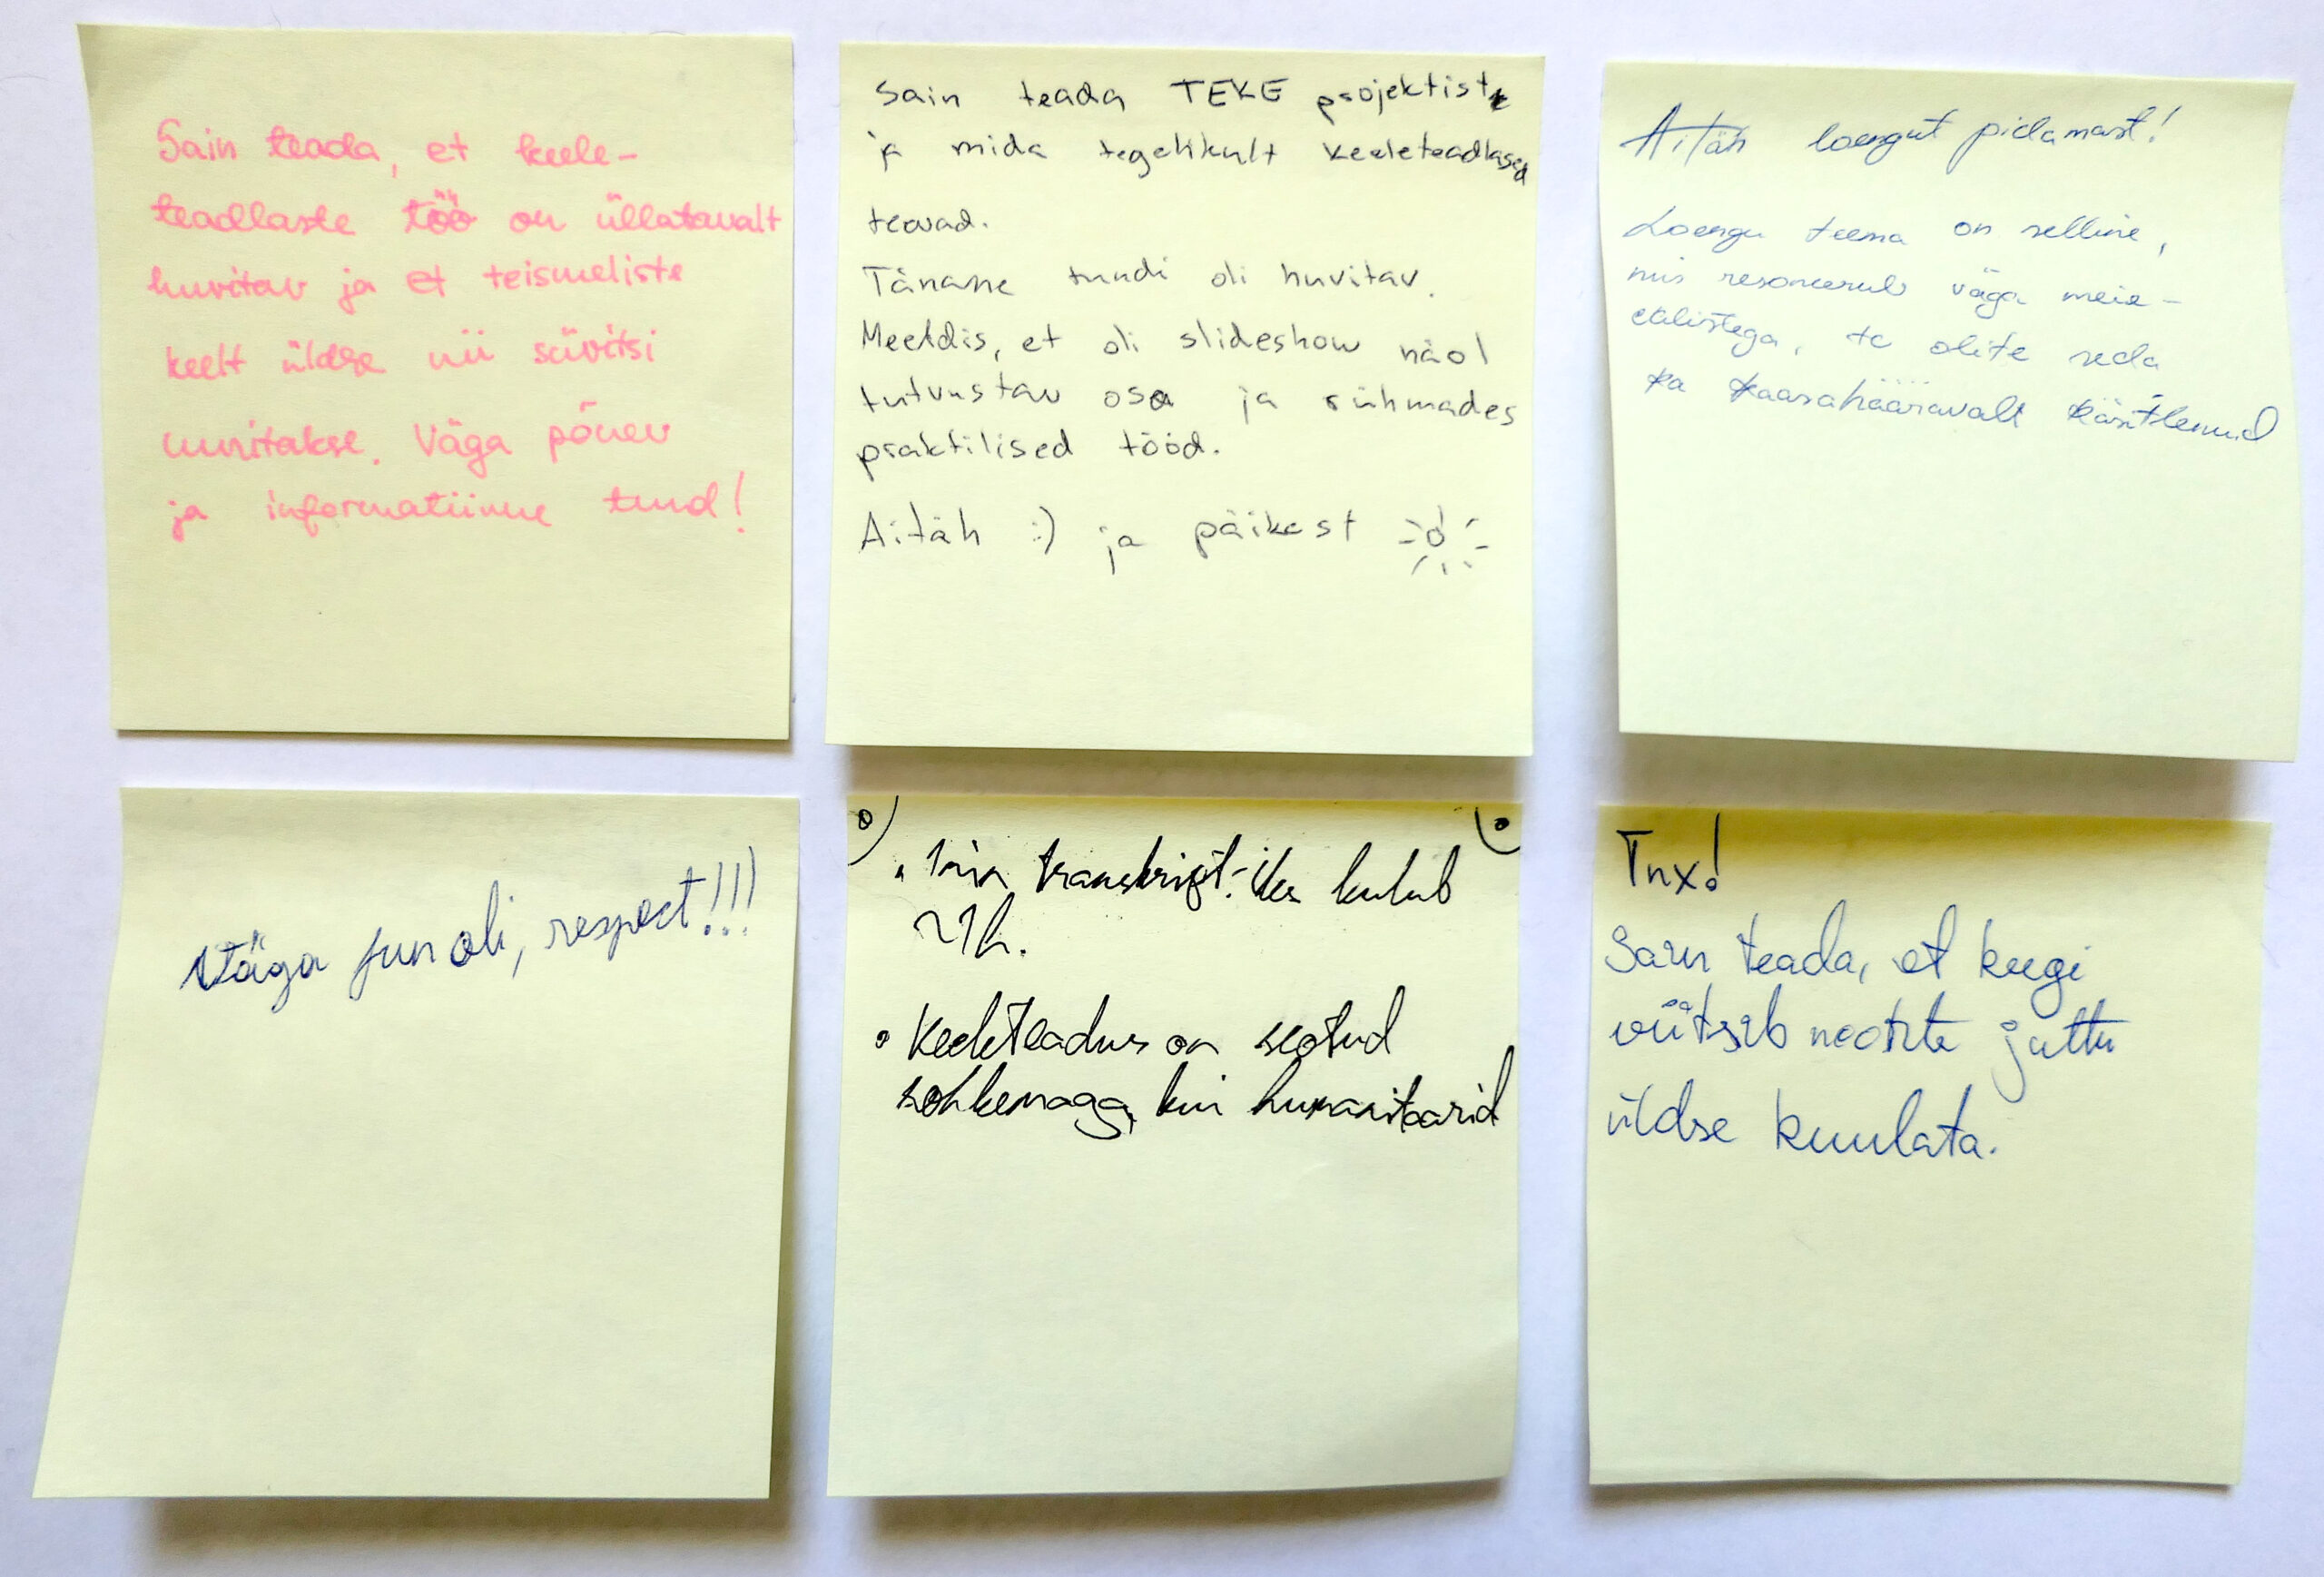 Sain teada, et keele-
teadlaste töö on üllatavalt
huvitav ja et teismeliste
keelt üldse nii süvitsi
uuritakse. Väga põnev
ja informatiivne tund!
Sain teada TEKE projektist
ja mida tegelikult keeleteadlased
teevad.
Tänane tundi oli huvitav.
Meeldis, et oli slideshow näol
tutvustav osa ja rühmades
praktilised tööd.
Aitäh :) ja päikest
Aitäh loengut pidamast!
Loengu teema on selline,
mis resoneerub väga meie-
ealistega, te olite seda
ka kaasahääravalt käsitlenud
Väga fun oli, respect!!!
1min transkript.-iks kulub
~1h.
Keeleteadus on seotud
rohkemaga, kui humanitaarid
Tnx!
Sain teada, et keegi
viitsib noorte juttu
üldse kuulata.